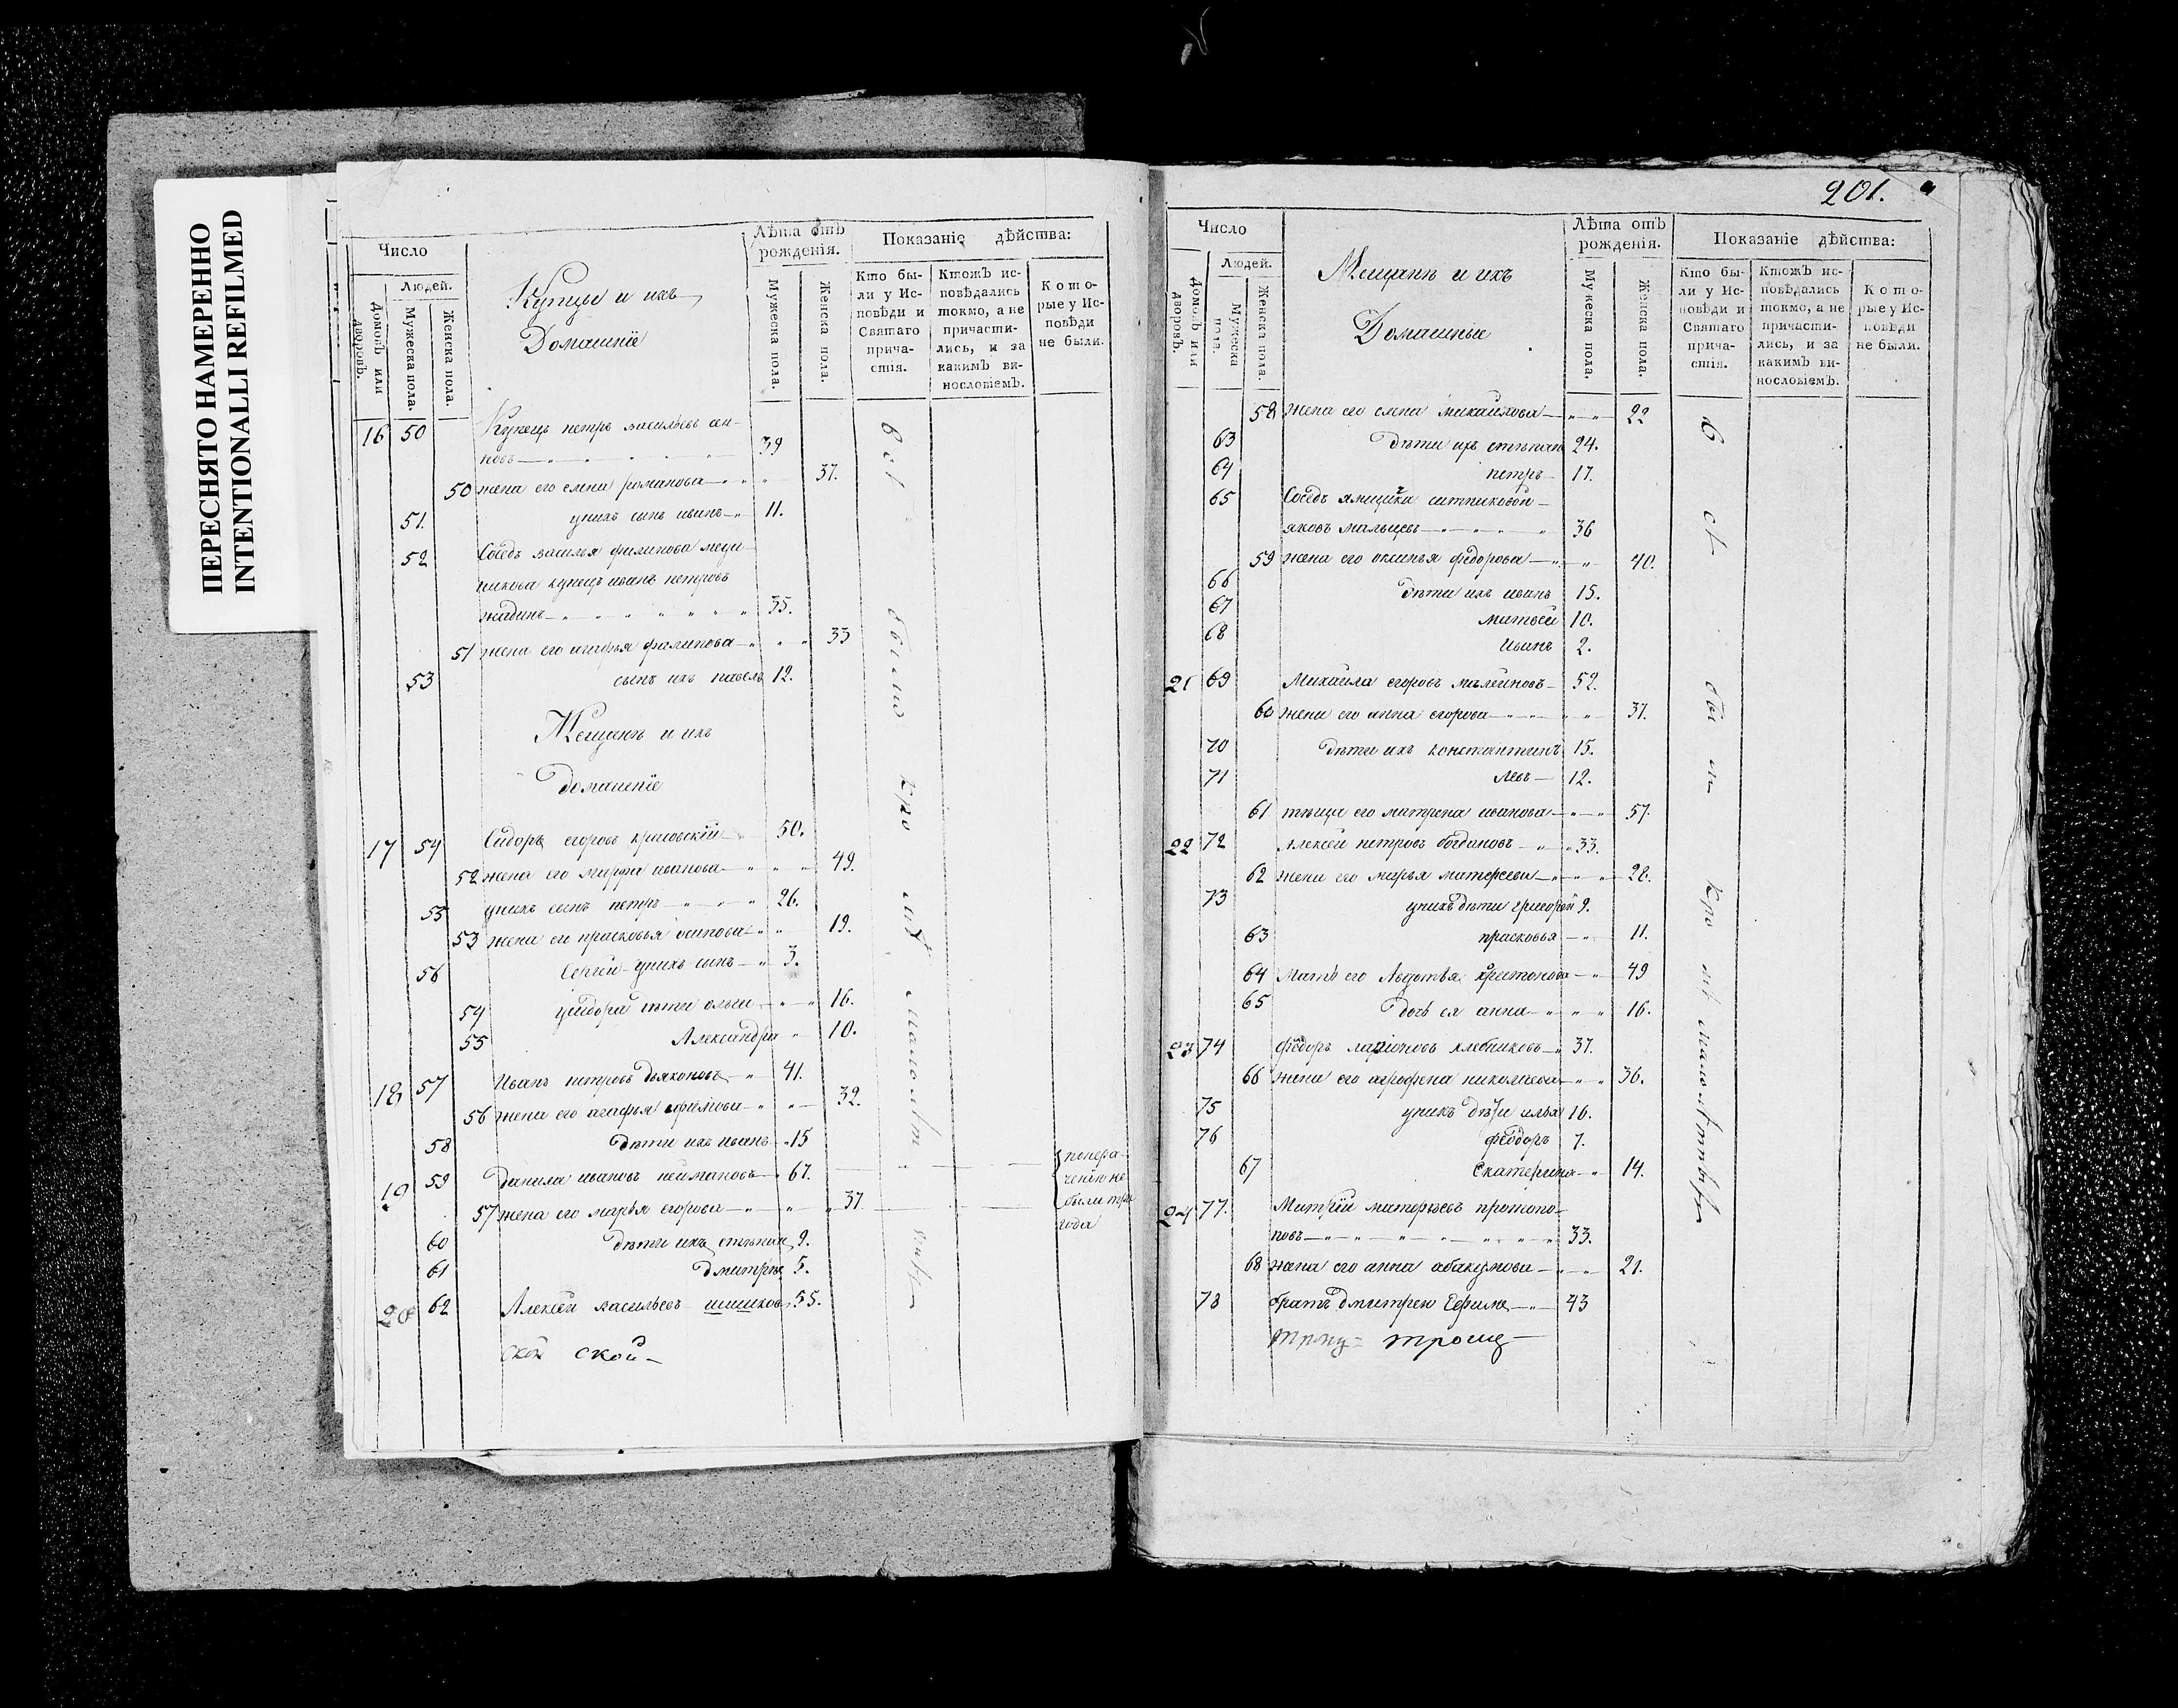 ПЕРЕСНЯТО НАМЕРЕННО
INTENTIONALLI REFILMED
Число
Людей.
Домовъ или дворовъ.
Мужеска пола.
Женска пола.
Купцы и ихъ
Домашніе
Лѣта отъ рожденія.
Мужеска пола.
Женска пола.
Показаніе дѣйства:
Кто бы-
ли у Ис-
повѣди и
Святаго
прича-
стія.
Ктожъ ис-
повѣдались
токмо, а не
причасти-
лись, и за
какимъ ви-
нословіемъ.
Кото-
рые у Ис-
повѣди
не были.
16 50 Купецъ петръ васильевъ сен-
новъ 39
50 жена его елена романова 37.
51. уних сынъ иванъ 11.
52 Соседъ василья филипова
купецъ иванъ петровъ
жадинъ 35.
51 жена его агафья филипова 33
53 сынъ ихъ павелъ 12.
Мещанъ и ихъ
домашніе
17 54 Сидоръ егоровъ 50.
52 жена его марфа иванова 49.
55 уних сынъ петръ 26.
53 жена его прасковья осипова 19.
56 Сергей уних сынъ 3.
54 усидора дѣти ольга 16.
55 Александра 10.
18 57 Иванъ петровъ дьяконовъ 41.
56 жена его агафья ефимова 32.
58 дѣти ихъ иванъ 15
19 59 данила ивановъ неймановъ 67.
57 жена его марья егорова 37
были три
года
60 дѣти ихъ степан 9.
61 дмитрей 5.
20 62 Алексей васильевъ шишков 55.
ской ской
всѣ были кро мѣ малолѣт
201.
Число
Людей.
Домовъ или дворовъ.
Мужеска пола.
Женска пола.
Мещанъ и ихъ
Домашные
Лѣта отъ рожденія.
Мужеска пола.
Женска пола.
Показаніе дѣйства:
Кто бы-
ли у Ис-
повѣди и
Святаго
прича-
стія.
Ктожъ ис-
повѣдались
токмо, а не
причасти-
лись, и за
какимъ ви-
нословіемъ.
Кото-
рые у Ис-
повѣди
не были.
58 жена его елена михайлова 22
63 дѣти ихъ степан 24.
64 петръ 17.
65 Соседъ ямщика ситниковой
яковъ мальцевъ 36
59 жена его оксинья федорова 40.
66 дѣти ихъ иванъ 15.
67 матвей 10.
68 иванъ 2.
21 69 Михаила егоровъ 52.
60 жена его анна егорова 37.
70 дѣти ихъ константинъ 15.
71 левъ 12.
61 тѣща его матрена иванова 57.
22 72 алексей петровъ богдановъ 33.
62 жена его марья матфеева 28.
73 уних дѣти григорей 9.
63 прасковья 11.
64 мать его Авдотья харитонова 49
65 дочь ея анна 16.
23 74 федоръ ларионовъ хлебниковъ 37.
66 жена его аграфена николаева 36.
75 уних дѣти илья 16.
76 феодоръ 7.
67 екатерина 14.
24 77. Митрій матфеевъ протопо-
повъ 33.
68 жена его анна абакумова 21.
78 братъ дмитрею Ефимъ 43
трощ
всѣ были кро мѣ малолѣтныхъ